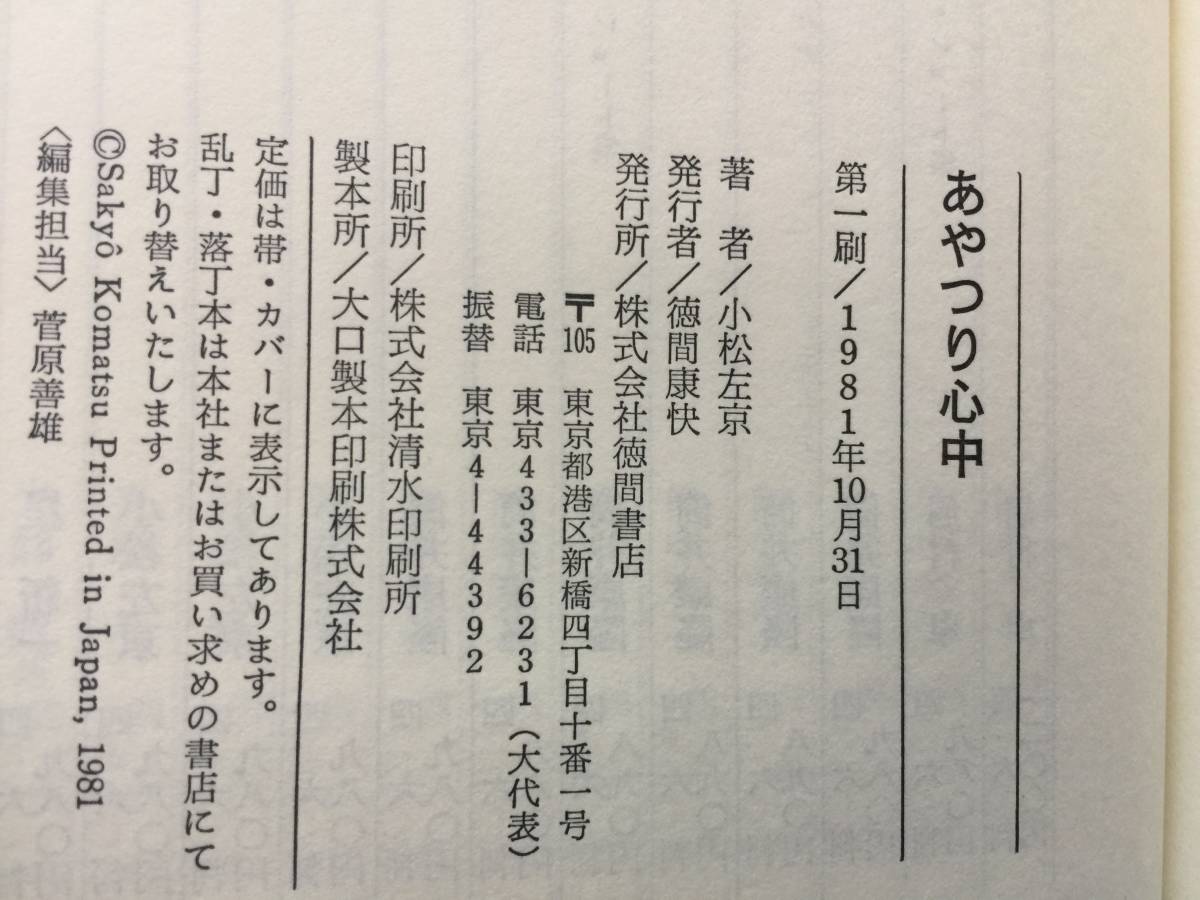 あやつり心中
第一刷/1981年10月31日
著 者/小松左京
発行者/徳間康快
発行所/株式会社徳間書店
〒105 東京都港区新橋四丁目十番一号
電話 東京433―6231(大代表)
振替 東京4―44392
印刷所/株式会社清水印刷所
製本所/大口製本印刷株式会社
定価は帯・カバーに表示してあります。
乱丁・落丁本は本社またはお買い求めの書店にて
お取り替えいたします。
©Sakyô Komatsu Printed in Japan, 1981
〈編集担当〉菅原善雄